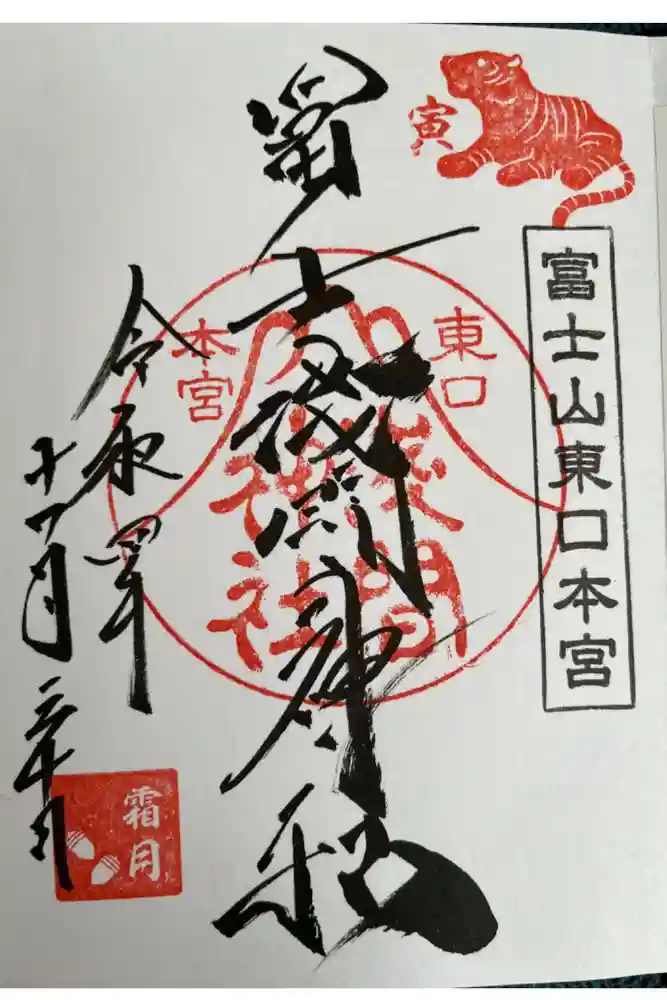 寅
富士山東口本宮
冨士浅間神社
東口
本宮
淺間
神社
令和四年
十一月
霜月